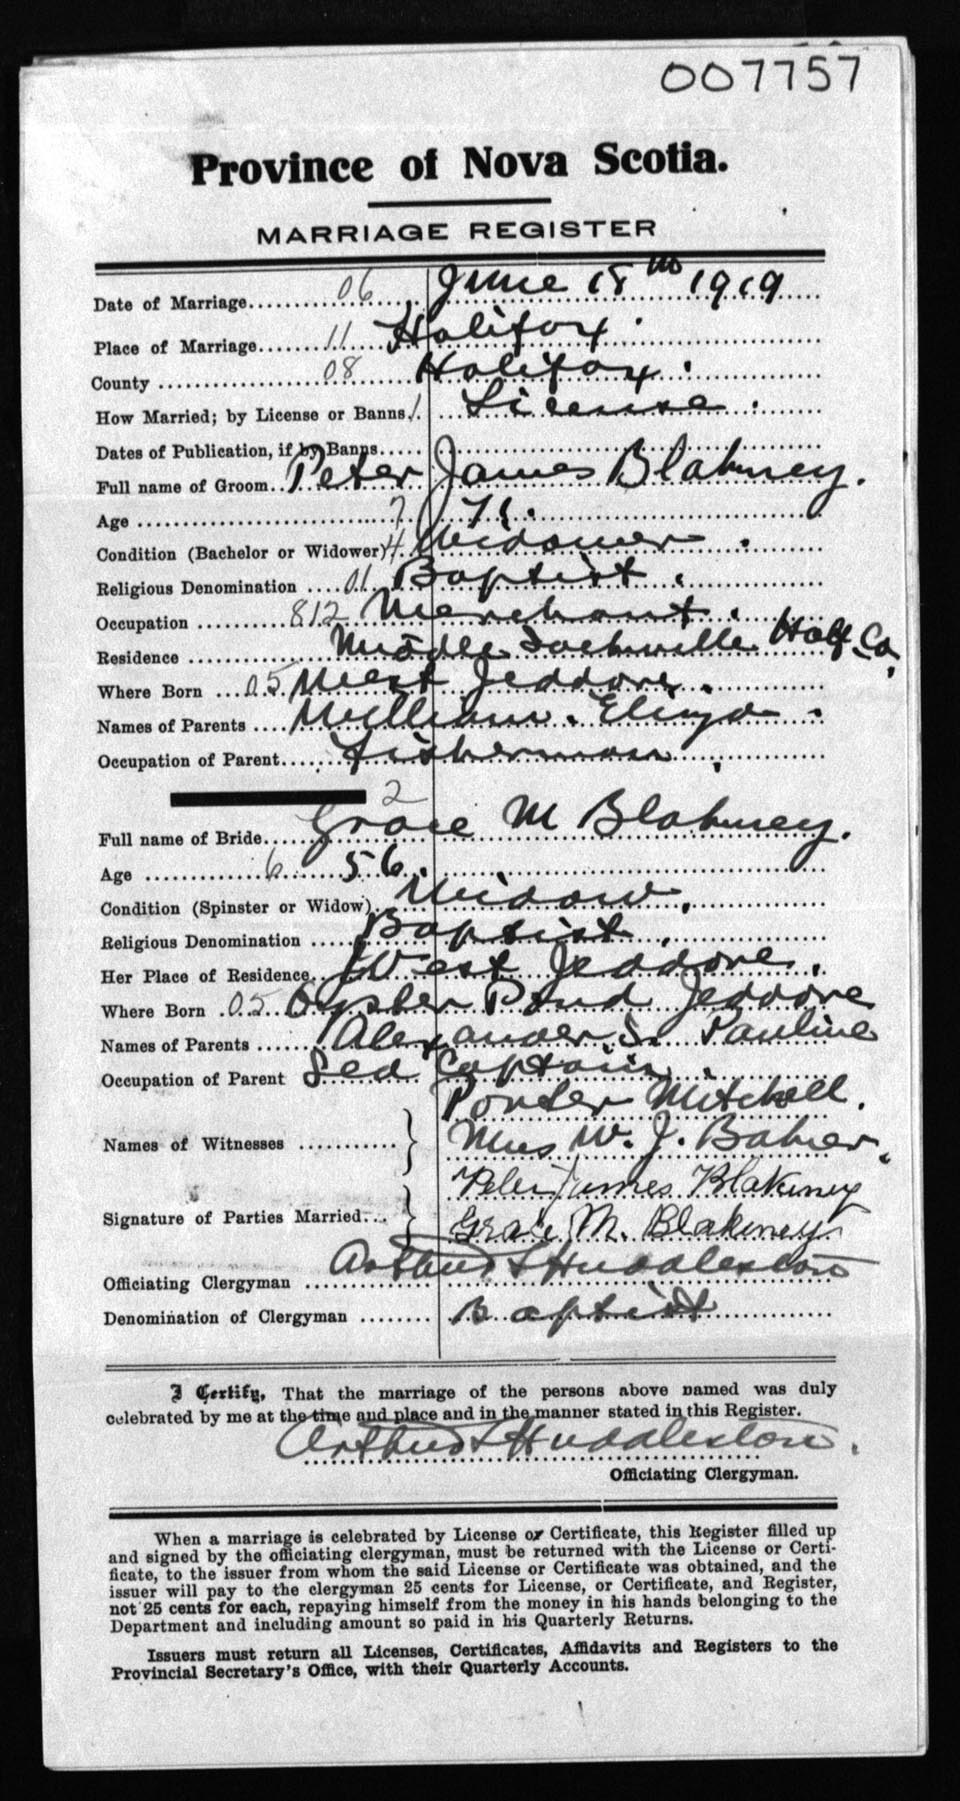 007757
Province of Nova Scotia.
MARRIAGE REGISTER
Date of Marriage 06 June 18th 1919
Place of Marriage 11 Halifax.
County 08 Halifax.
How Married; by License or Banns 1 License.
Dates of Publication, if by Banns
Full name of Groom Peter James Blakney.
Age 7 71.
Condition (Bachelor or Widower) 4 Widower.
Religious Denomination 01 Baptist.
Occupation 812 Merchant.
Residence Middle Sackville Half. Co.
Where Born 05 West Jeddore.
Names of Parents William. Elizya.
Occupation of Parent Fisherman.
2
Full name of Bride Grace M Blakney.
Age 6 56.
Condition (Spinster or Widow) Widow.
Religious Denomination Baptist.
Her Place of Residence West Jeddore.
Where Born 05 Oyster Pond Jeddore
Names of Parents Alexander S. Pauline
Occupation of Parent Sea Captain.
Porter Mitchell.
Names of Witnesses Mrs W. J. Baker.
Peter James Blakeney
Signature of Parties Married Grace M. Blakeney
Officiating Clergyman Arthur S Huddleston
Denomination of Clergyman Baptist
I Certify, That the marriage of the persons above named was duly
celebrated by me at the time and place and in the manner stated in this Register.
Arthur S Huddleston.
Officiating Clergyman.
When a marriage is celebrated by License or Certificate, this Register filled up
and signed by the officiating clergyman, must be returned with the License or Certi-
ficate, to the issuer from whom the said License or Certificate was obtained, and the
issuer will pay to the clergyman 25 cents for License, or Certificate, and Register,
not 25 cents for each, repaying himself from the money in his hands belonging to the
Department and including amount so paid in his Quarterly Returns.
Issuers must return all Licenses, Certificates, Affidavits and Registers to the
Provincial Secretary's Office, with their Quarterly Accounts.